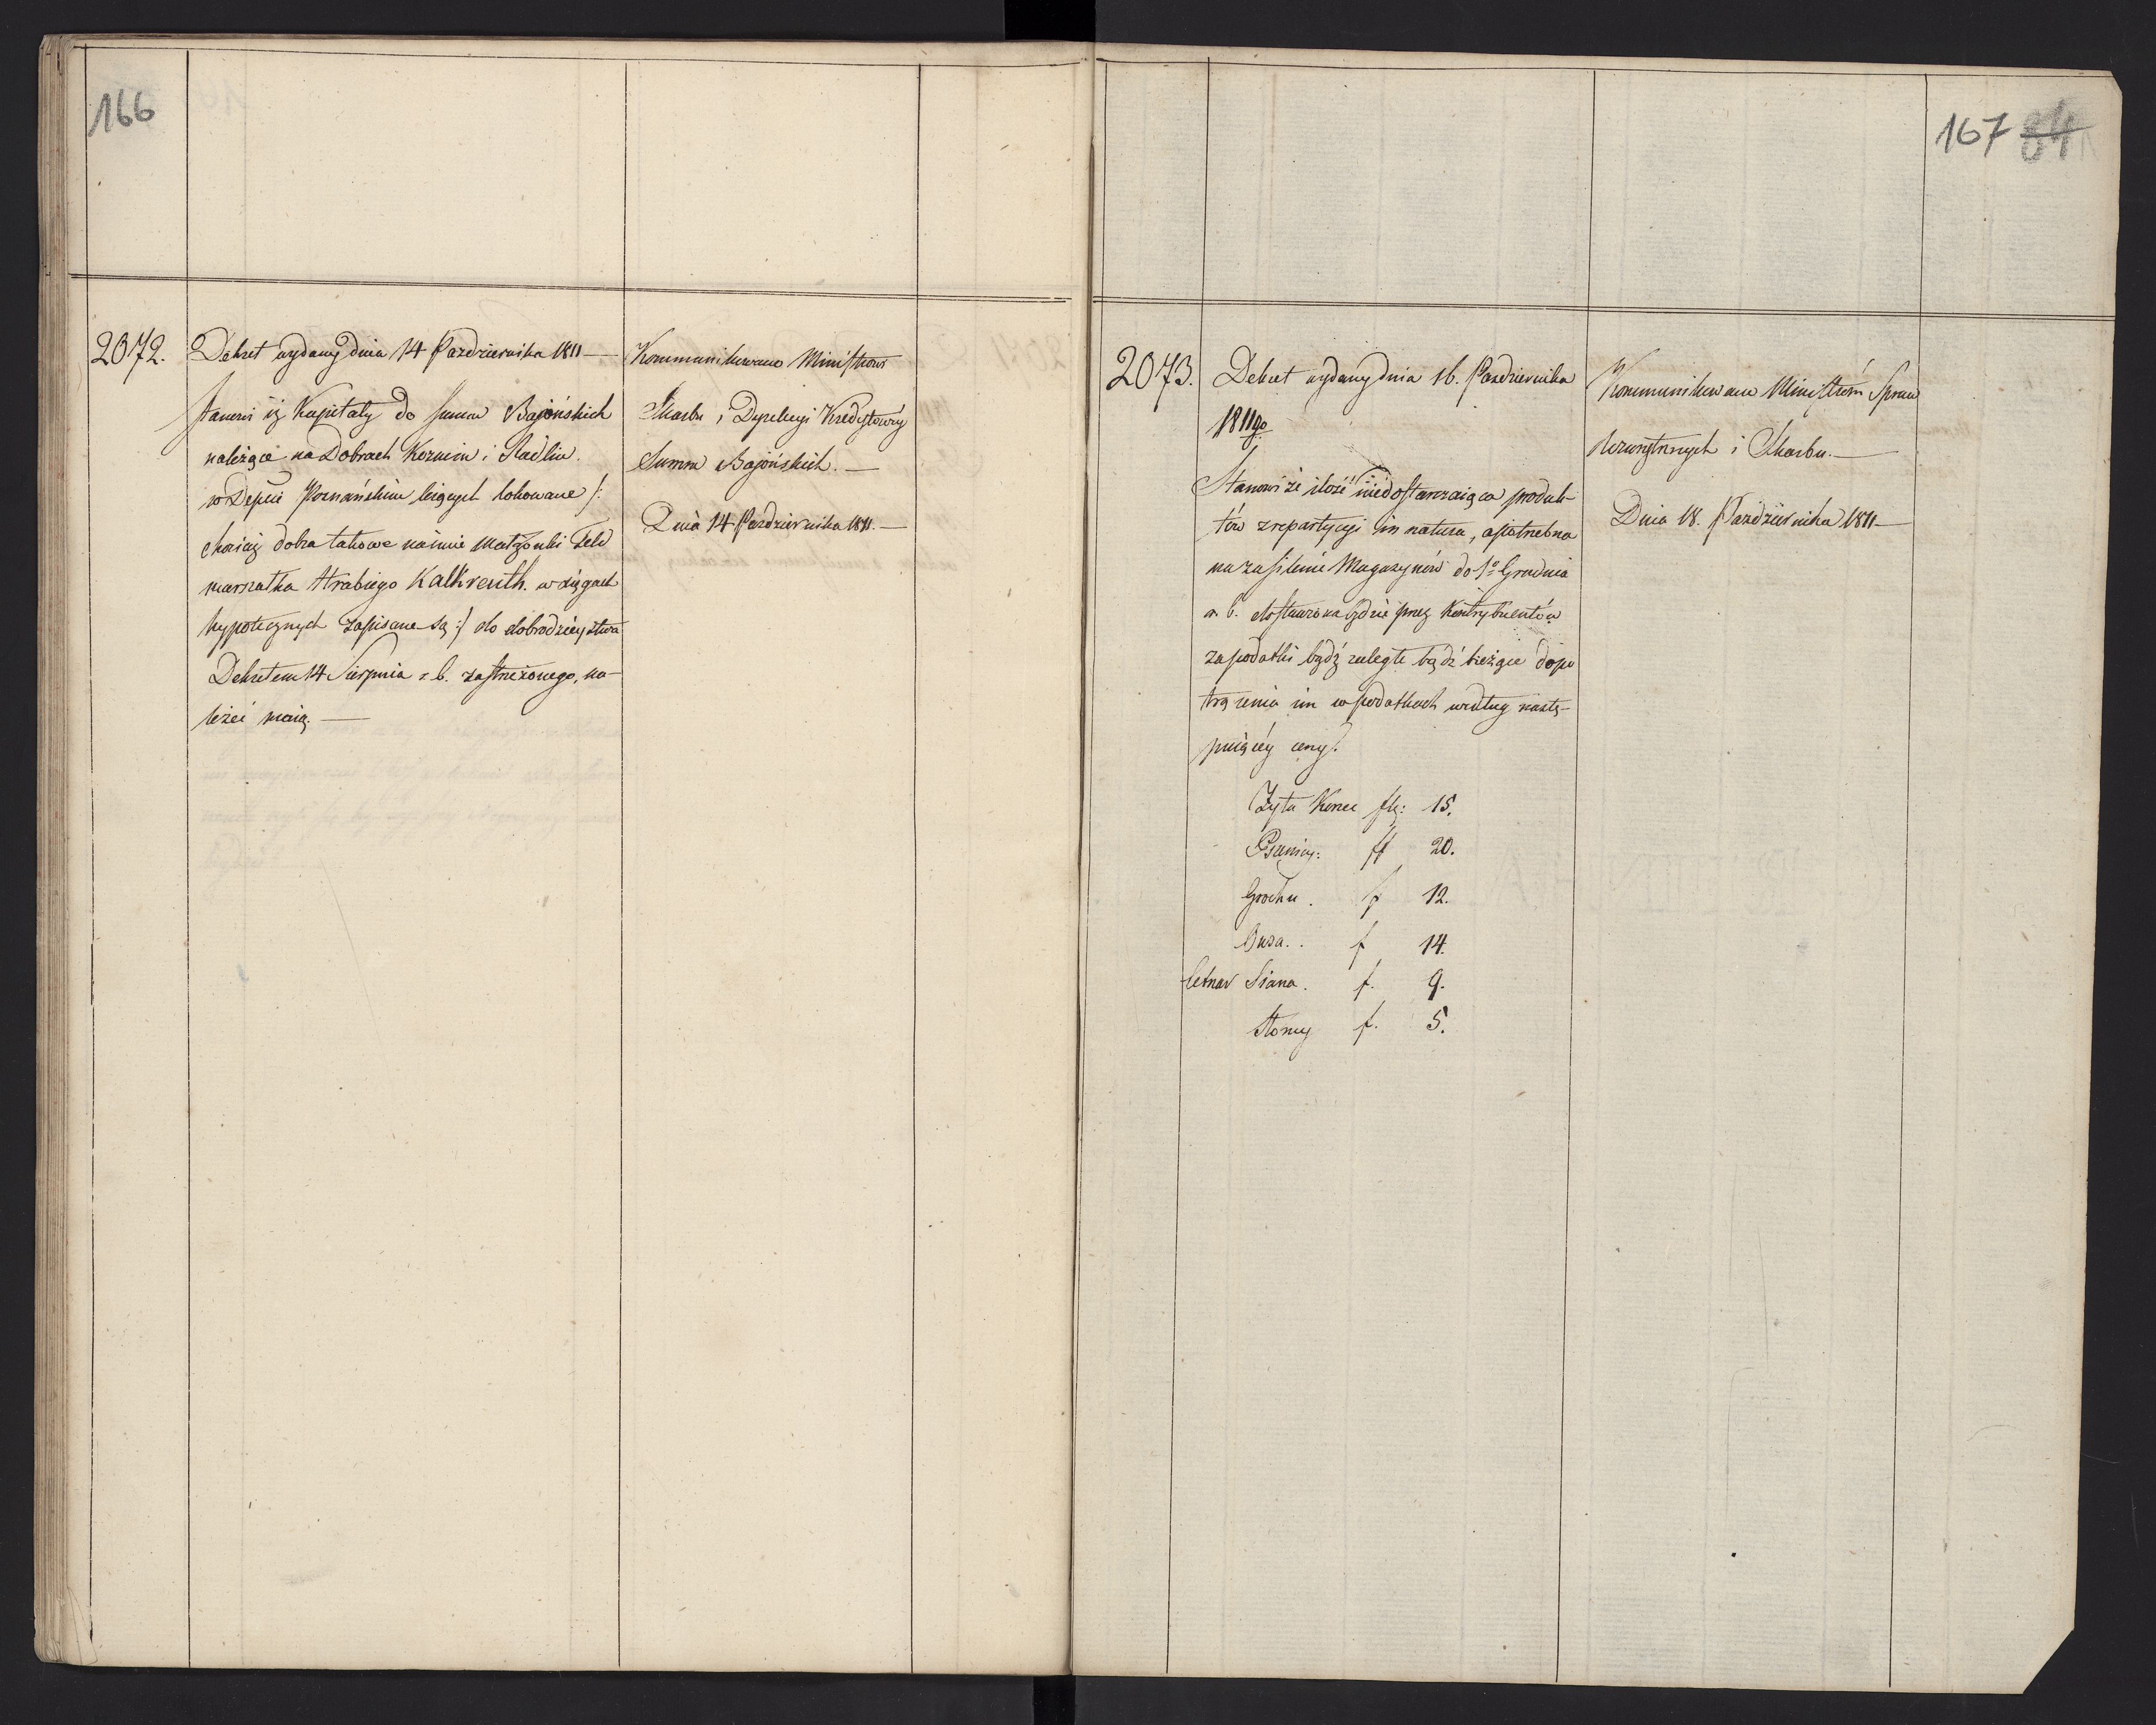 166
2072.
Dekret wydany dnia 14 Pazdziernika 1811 —
stanowi iż Kapitały do summ Bajońskich
należące na Dobrach Kozmin i Radlin
w Depcie Poznańskim leżących lokowane /:
chociaż dobra takowe na imie Małżonki Feld
marszałka Hrabiego Kalkreuth. w xięgach
hypotecznych zapisane są :/ do dobrodzieystwa
Dekretem 14 Sierpnia r. b. zastrzeżonego, na-
leżeć maią. —
Kommunikowano Ministrowi
Skarbu i Dyrekcyi Kredytowéy
Summ Bajońskich. —
Dnia 14 Pazdziernika 1811. —
167 84
2073.
Dekret wydany dnia 16. Pazdziernika
1811go
Stanowi że ilość niedostarczaiąca produk-
tów z repartycyi in natura, a potrzebna
na zasilenie Magazynów do 1o Grudnia
r. b. dostawiona będzie przez Kontrybuentów
za podatki bądź zaległe bądź bieżące do po
trącenia im w podatkach według nastę-
puiącéy ceny.
Żyta Korzec flp: 15.
Pszenicy: ff 20.
Grochu. f 12.
Owsa. . f 14.
Cetnar Siana. f. 9.
Słomy f. 5.
Kommunikowano Ministróm Spraw
Wewnętrznych i Skarbu. —
Dnia 18. Pazdziernika 1811 —